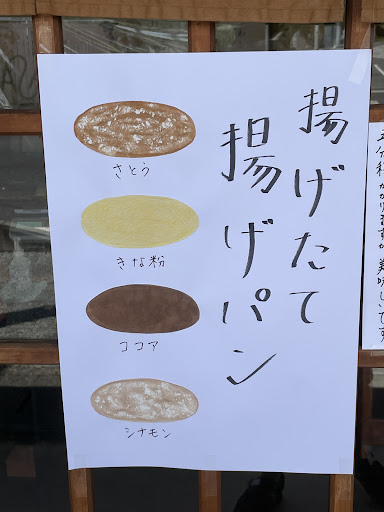 揚げたて
揚げパン
さとう
きな粉
ココア
シナモン